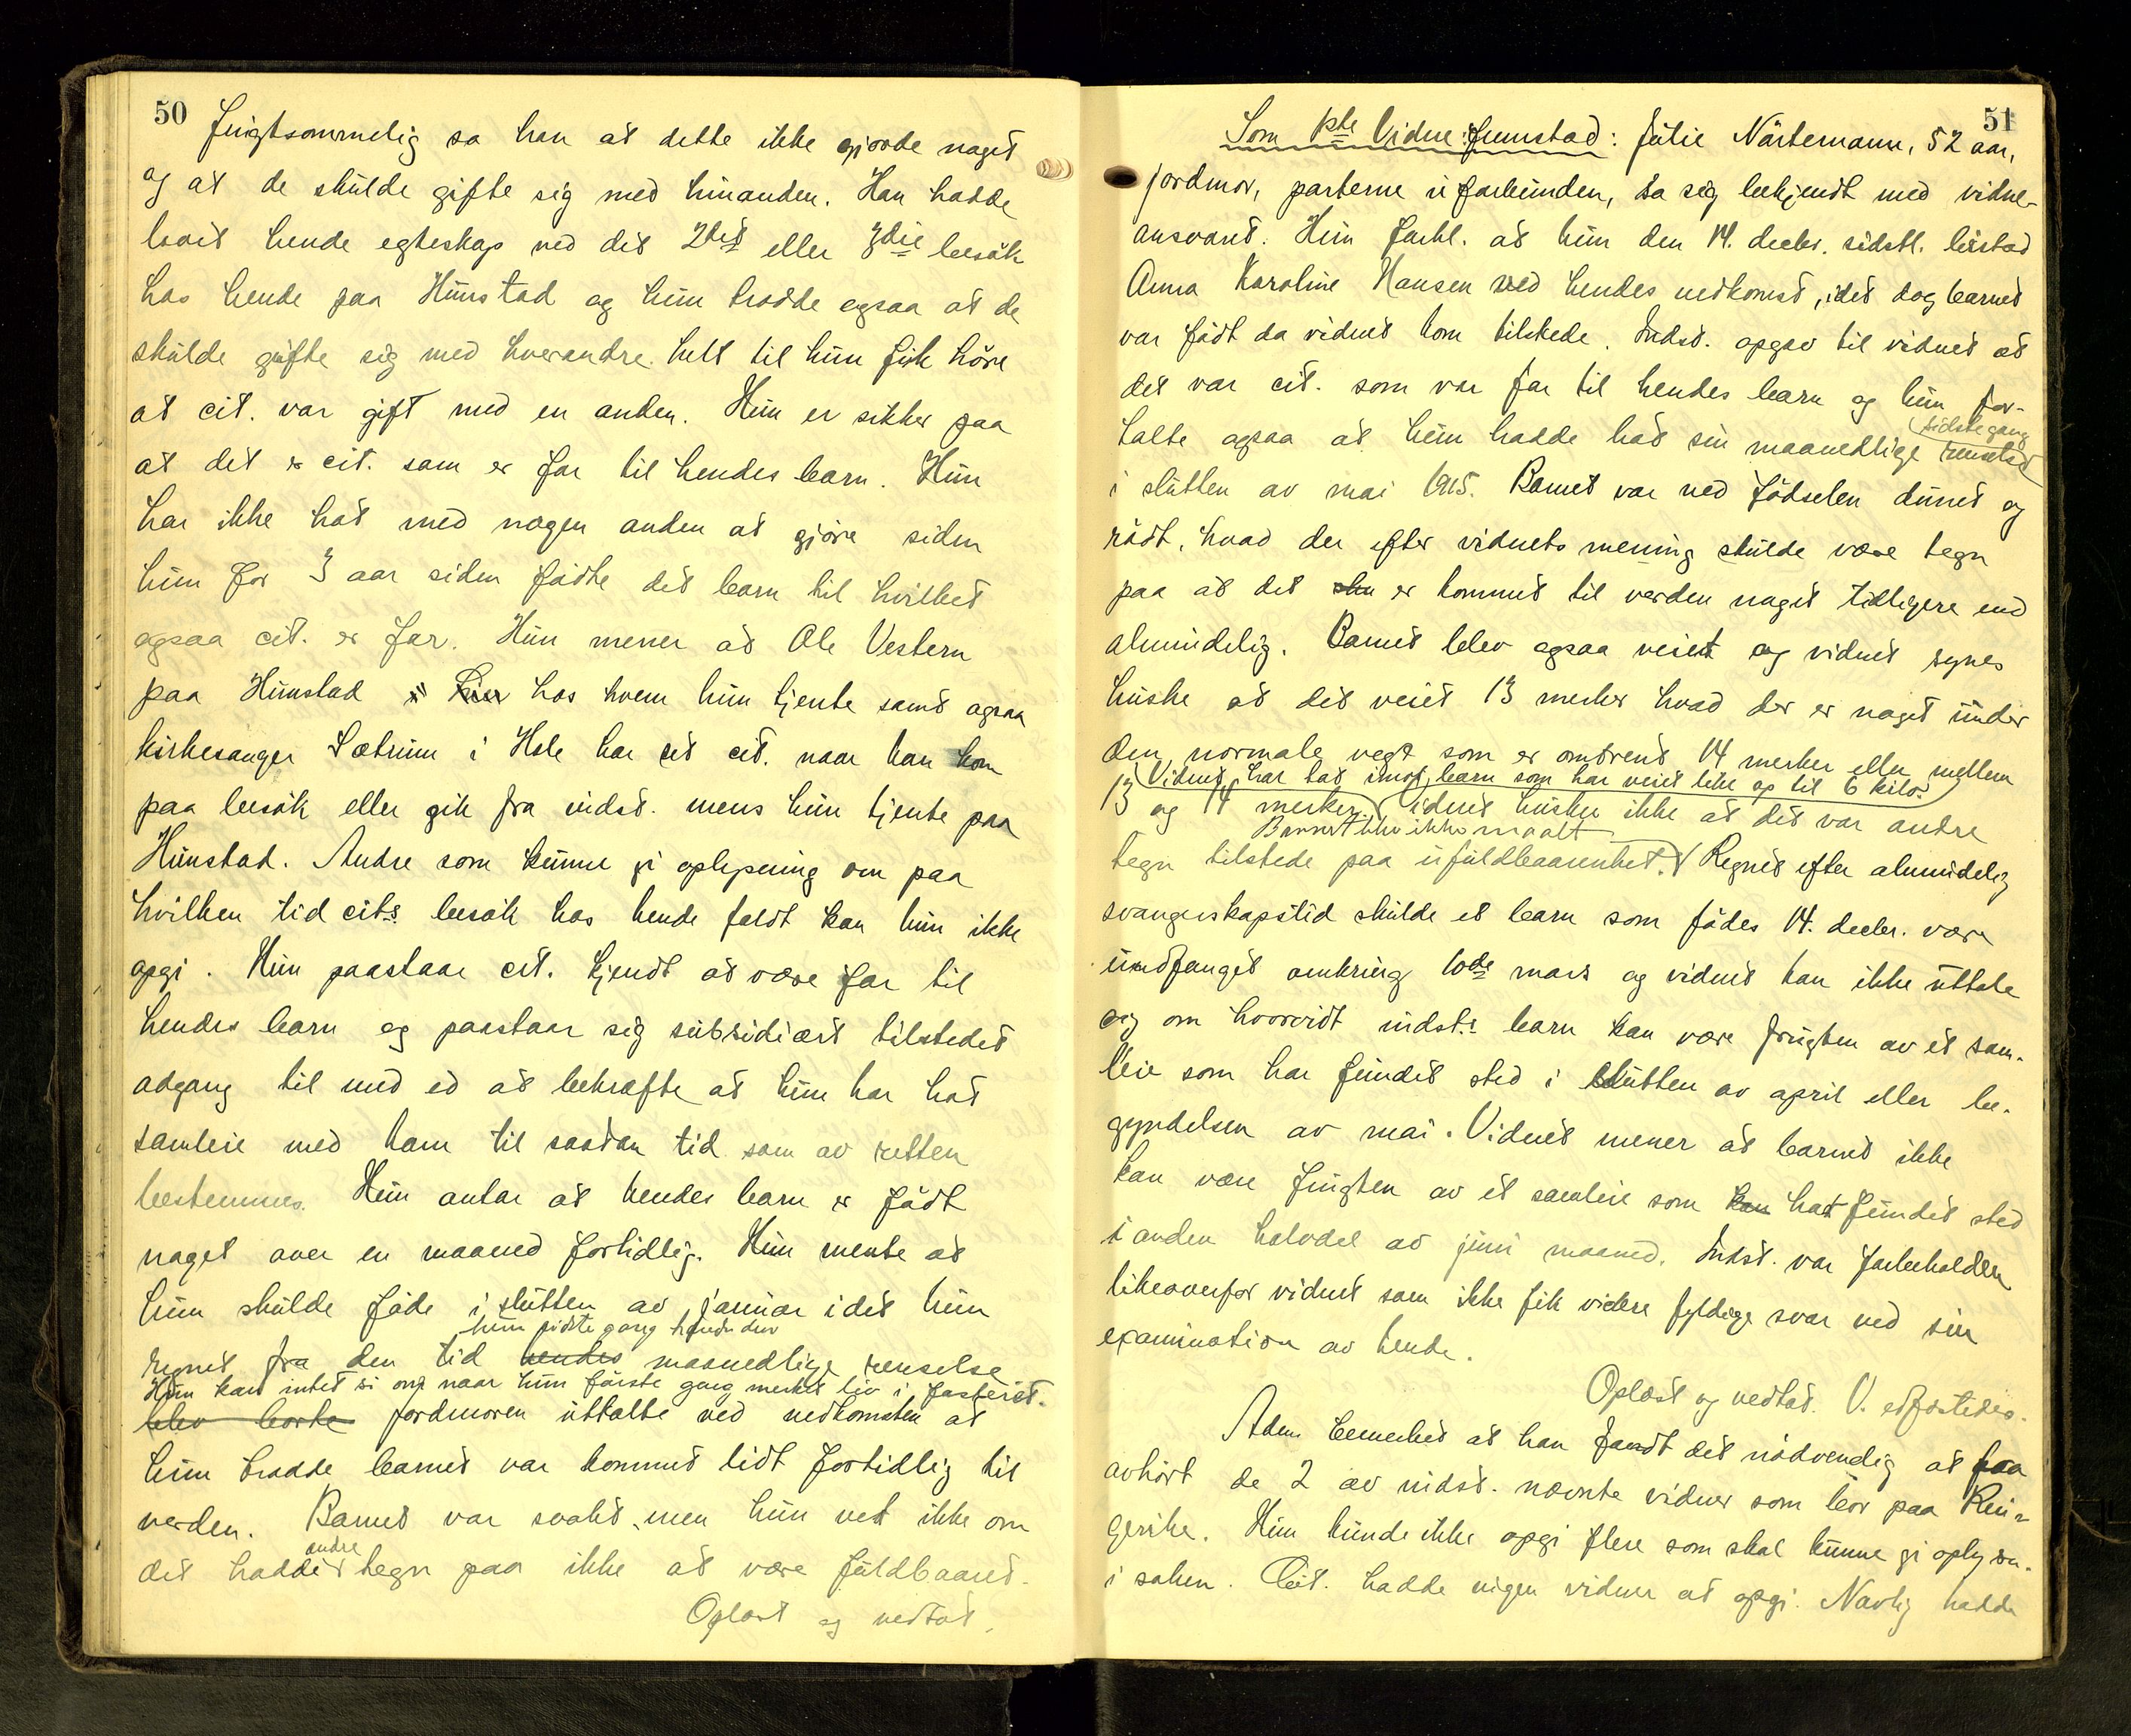 50
frugtsommelig sa han at dette ikke gjorde noget
og at de skulde gifte sig med hinanden. Han hadde
lovit hende egteskap ved det 2det eller 3die besøk
hos hende paa Hunstad og hun trodde ogsaa at de
skulde gifte sig med hverandre helt til hun fik høre
at cit. var gift med en anden. Hun er sikker paa
at det er cit. som er far til hendes barn. Hun
har ikke hat med nogen anden at gjøre siden
hun for 3 aar siden fødte det barn til hvilket
ogsaa cit. er far. Hun mener at Ole Vestern
paa Hunstad hos hvem hun tjente samt ogsaa
kirkesanger Sætrum i Hole har set cit. naar han kom
paa besøk eller gik fra indst. mens hun tjente paa
Hunstad. Andre som kunne gi oplysning om paa
hvilken tid cits besøk hos hende faldt kan hun ikke
opgi. Hun paastaar cit. kjendt at være far til
hendes barn og paastaar sig subsidiært tilstedet
adgang til med ed at bekræfte at hun har hat
samleie med ham til saadan tid som av retten
bestemmes. Hun antar at hendes barn er født
noget over en maaned fortidlig. Hun mente at
hun skulde føde i slutten av januar idet hun
hun sidste gang hadde den
regnet fra den tid hendes maanedlige renselse
Hun kan intet si om naar hun første gang merket liv i fosteret.
blev borte Jordmoren uttalte ved nedkomsten at
hun trodde barnet var kommet lidt fortidlig til
verden. Barnet var svakt, men hun vet ikke om
andre
det hadde tegn paa ikke at være fuldbaaret.
Oplæst og vedtat.
51
Som 1ste Vidne fremstod: Julie Närtemann, 52 aar,
jordmor, parterne uforbunden, sa sig bekjendt med vidne-
ansvaret. Hun forkl. at hun den 14. decbr. sidstl. bistod
Anna Karoline Hansen ved hendes nedkomst, idet dog barnet
var født da vidnet kom tilstede. Indst. opgav til vidnet at
det var cit. som var far til hendes barn og hun for-
sidste gang
talte ogsaa at hun hadde hat sin maanedlige renselse
i slutten av mai 1915. Barnet var ved fødselen dunet og
rødt, hvad der efter vidnets mening skulde være tegn
paa at det er kommet til verden noget tidligere end
almindelig. Barnet blev ogsaa veiet og vidnet synes
huske at det veiet 13 merker hvad der er noget under
den normale vegt som er omtrent 14 merker eller mellem
Vidnet har tat imot barn som har veiet like op til 6 kilo.
13 og 14 merker. Vidnet husker ikke at det var andre
Barnet blev ikke maalt
tegn tilstede paa ufuldbaarenhet. Regnet efter almindelig
svangerskapstid skulde et barn som fødes 14. decbr. være
undfanget omkring 10de mars og vidnet kan ikke uttale
sig om hvorvidt indst.s barn kan være frugten av et sam-
leie som har fundet sted i slutten av april eller be-
gyndelsen av mai. Vidnet mener at barnet ikke
kan være frugten av et samleie som kan hat fundet sted
i anden halvdel av juni maaned. Indst. var forbeholden
likeoverfor vidnet som ikke fik videre fyldige svar ved sin
examination av hende.
Oplæst og vedtat. V. edfæstedes.
Adm. bemerket at han fandt det nødvendig at faa
avhørt de 2 av indst. nævnte vidner som bor paa Rin-
gerike. Hun kunde ikke opgi flere som skal kunne gi oplysn.
i saken. Cit. hadde ingen vidner at opgi. Navlig hadde